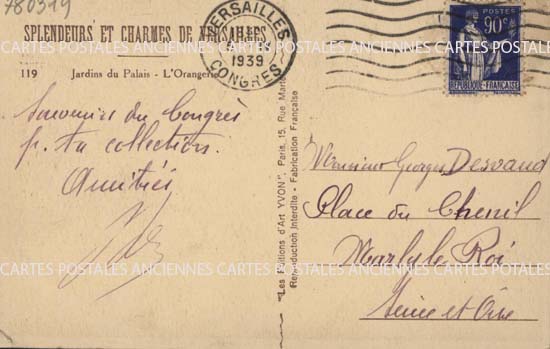 780319
SPLENDEURS ET CHARMES DE VERSAILLES
119 Jardins du Palais - L'Orangerie
VERSAILLES
1939
CONGRES
POSTES
90c
REPUBLIQUE-FRANÇAISE
Souvenirs du Congrès
p. ta collection.
Amitiés
"Les Editions d'Art YVON", Paris, 15, Rue Martel
Reproduction Interdite - Fabrication Française
Monsieur Georges Desvaud
Place du Chenil
Marly le Roi
Seine et Oise
CARTES POSTALES ANCIENNES CARTES POSTALES ANCIENNES CARTES POSTALES ANCIENNES